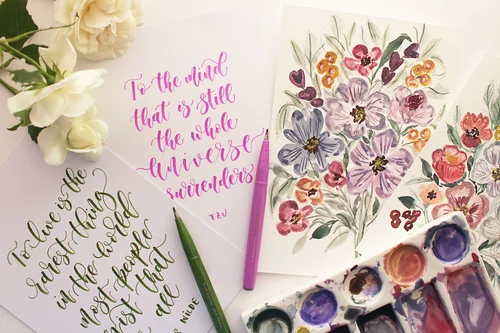 To the mind
that is still
the whole
Universe
surrenders
TZU
To live is the
rarest thing
in the world
most people
exist that
all
WILDE